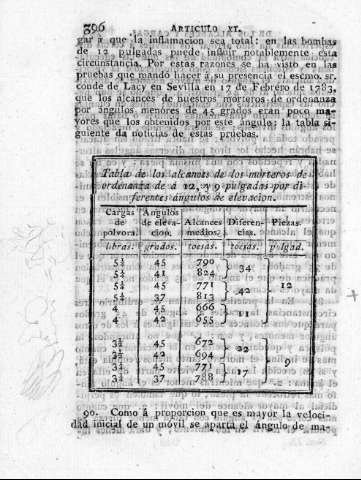 396 ARTICULO XI.
gar á que la inflamacion sea total: en las bombas
de 12 pulgadas puede influir notablemente esta
circunstancia. Por estas razones se ha visto en las
pruebas que mandó hacer á su presencia el escmo. sr.
conde de Lacy en Sevilla en 17 de Febrero de 1783,
que los alcances de nuestros morteros de ordenanza
por ángulos menores de 45 grados eran poco ma-
yores que los obtenidos por este ángulo: la tabla si-
guiente da noticias de estas pruebas.
Tabla de los alcances de los morteros de
ordenanza de á 12, y 9 pulgadas por di
ferentes ángulos de elevacion.
Cargas Angulos
de de eleva- Alcances Diferen- Piezas
polvora. cion. medios. cias.
libras. grados. toesas. toesas. pulgad.
45 790
41 824 34
45 771
37 813 42 12
4 45 666
4 42 655 11
3½ 45 672
3½ 42 694 22
3¾ 45 771 9
3¾ 37 788 17
90. Como á proporcion que es mayor la veloci-
dad inicial de un móvil se aparta el ángulo de ma-